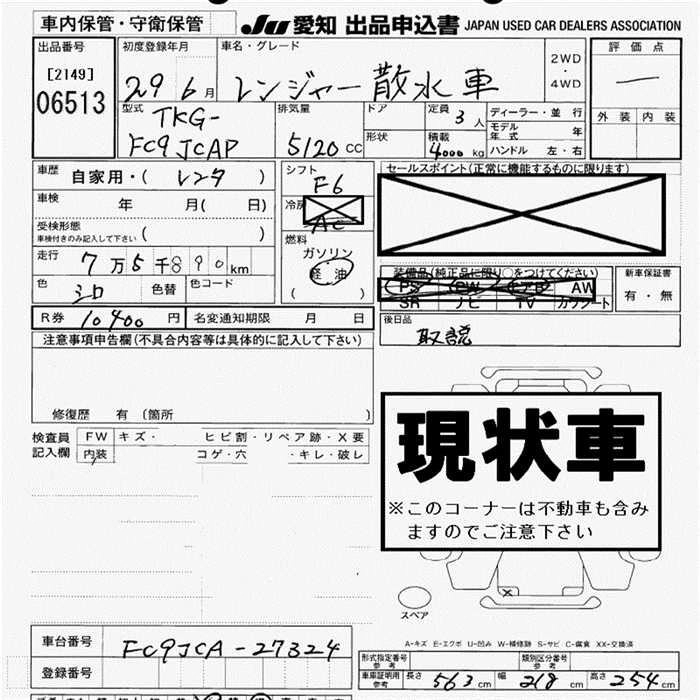 車内保管・守衛保管 JU 愛知 出品申込書 JAPAN USED CAR DEALERS ASSOCIATION
出品番号 初度登録年月 車名・グレード 2WD・4WD 評価点
[2149]
06513 29 6月 レンジャー散水車 —
型式 排気量 ドア 定員 3人 ディーラー・並行 外装 内装
TKG- 形状 積載 モデル年式 年
FC9JCAP 5120 CC 4000 kg ハンドル 左・右
車歴 自家用・( レンタ ) シフト F6 セールスポイント(正常に機能するものに限ります)
車検 年 月( 日) 冷房 AC
受検形態
車検付きのみ記入して下さい ( ) 燃料
走行 7万5千890km ガソリン 装備品(純正品に限り○をつけてください) 新車保証書
色 シロ 色替 色コード 軽油 PS PW エアB AW 有・無
( ) SR ナビ TV カワシート
R券 10400 円 名変通知期限 月 日 後日品
取説
注意事項申告欄(不具合内容等は具体的に記入して下さい)
修復歴 有 (箇所 )
検査員 FW キズ・ ヒビ割・リペア跡・X要
記入欄 内装 コゲ・穴 ・キレ・破レ
現状車
※このコーナーは不動車も含み
ますのでご注意下さい
スペア
A-キズ E-エクボ U-凹み W-補修跡 S-サビ C-腐食 XX-交換済
車台番号 FC9JCA-27324 形式指定番号 参考 類別区分番号 参考
登録番号 車庫証明用 参考 長さ 563 cm 幅 218 cm 高さ 254 cm